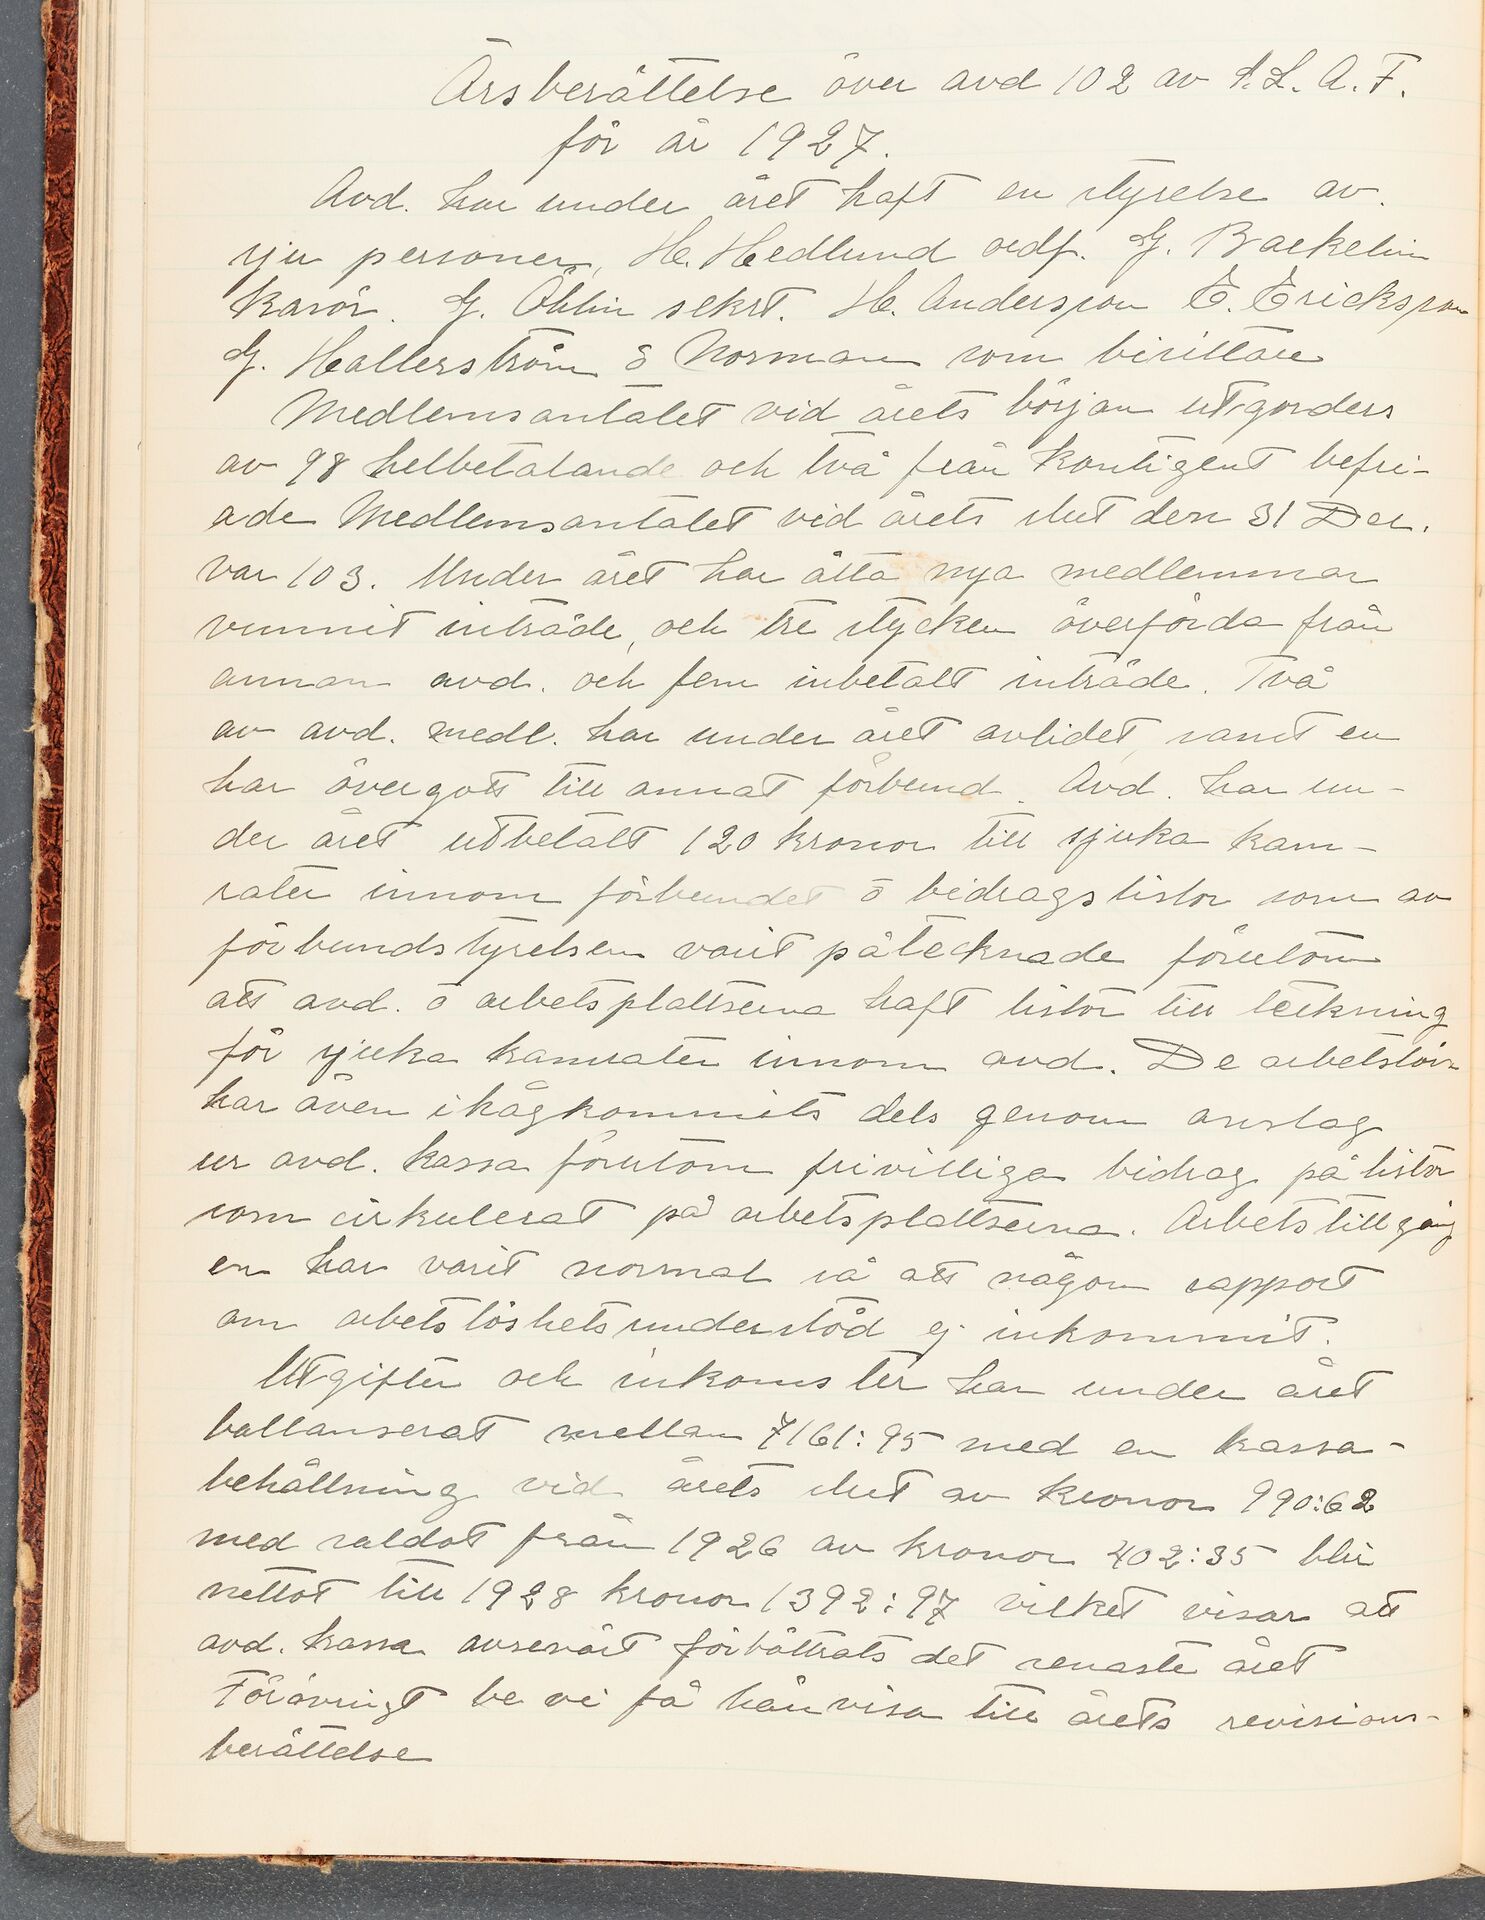 Årsberättelse över avd 102 av S.L.A.F.
för år 1927.
Avd. har under året haft en styrelse av
sju personer, H. Hedlund ordf. G. Backelin
kasör. G. Öhlin sekrt. H. Andersson E. Ericksson
G. Hallerström o Norman som bisittare
Medlemsantalet vid årets början utgordes
av 98 helbetalande och två från kontigent befri-
ade Medlemsantalet vid årets slut den 31 Dec.
var 103. Under året har åtta nya medlemmar
vunnit inträde, och tre stycken överförda från
annan avd. och fem inbetalt inträde. Två
av avd. medl. har under året avlidet, samt en
har övergott till annat förbund. Avd. har un-
der året utbetalt 120 kronor till sjuka kam-
rater innom förbundet å bidragslistor som av
förbundstyrelsen varit påtecknade förutom
att avd. å arbetsplattserna haft listor till teckning
för sjuka kamrater innom avd. De arbetslösa
har även ihågkommits dels genom anslag
ur avd. kassa förutom frivilliga bidrag på listor
som cirkulerat på arbetsplattserna. Arbetstillgång
en har varit normal så att någon rapport
om arbetslöshetsunderstöd ej inkommit.
Utgifter och inkomster har under året
ballanserat mellan 7161:95 med en kassa-
behållning vid årets slut av kronor 990:62
med saldot från 1926 av kronor 402:35 blir
nettot till 1928 kronor 1392:97 vilket visar att
avd. kassa avsevärt förbättrats det senaste året
Förövrigt be vi få hänvisa till årets revisions-
berättelse